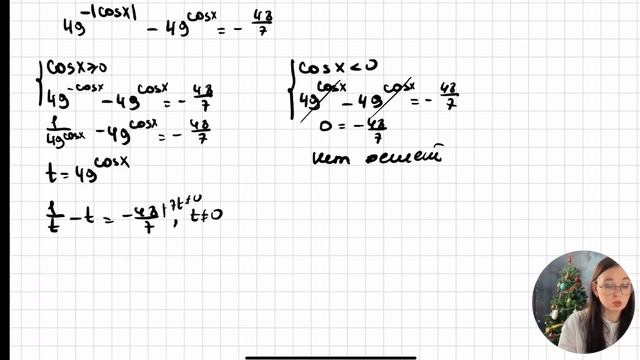 49^{-|cosx|} - 49^{cosx} = - 48/7
{ cosx ≥ 0
49^{-cosx} - 49^{cosx} = - 48/7
1/49^{cosx} - 49^{cosx} = - 48/7
t = 49^{cosx}
1/t - t = - 48/7 | 7t≠0, t≠0
{ cosx < 0
49^{cosx} - 49^{cosx} = - 48/7
0 = - 48/7
нет решений